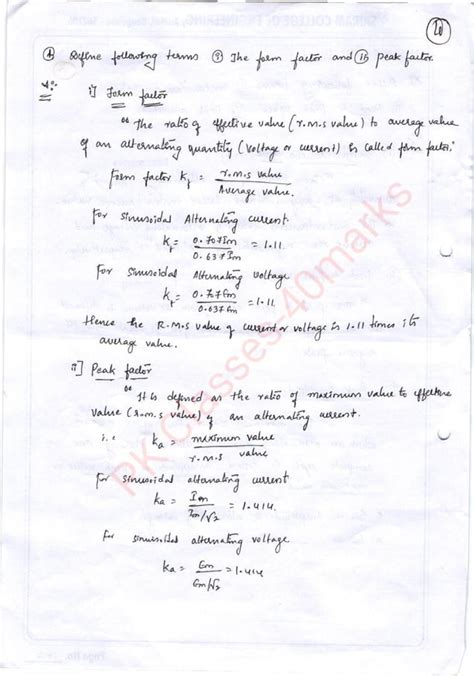 20
④ Define following terms ① The form factor and ⓘⓘ peak factor.
i] Form factor
The ratio of effective value (r.m.s value) to average value
of an alternating quantity (voltage or current) is called form factor.
Form factor Kf = r.m.s value / Average value.
For sinusoidal Alternating current.
Kf = 0.707Im / 0.637Im = 1.11
For sinusoidal Alternating voltage
Kf = 0.707Em / 0.637Em = 1.11
Hence the R.M.S value of current or voltage is 1.11 times its
average value.
ii] Peak factor
It is defined as the ratio of maximum value to effective
value (r.m.s value) of an alternating current.
i.e. Ka = maximum value / r.m.s value
For sinusoidal alternating current
Ka = Im / Im/√2 = 1.414.
For sinusoidal alternating voltage
Ka = Em / Em/√2 = 1.414
PK Classes-40marks